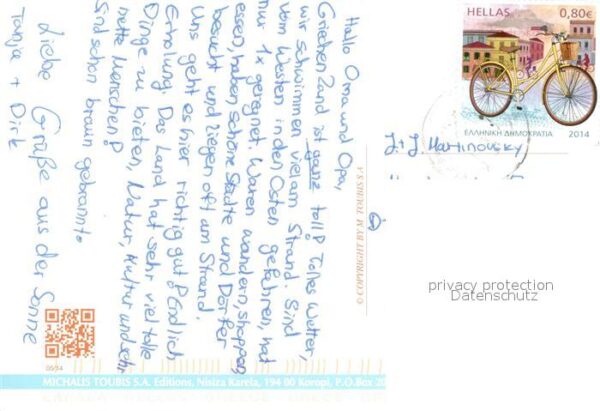 Hallo Oma und Opa,
Griechenland ist ganz toll! Tolles Wetter,
wir schwimmen viel am Strand. Sind
vom Westen in den Osten gefahren, hat
nur 1x geregnet. Waren wandern, shoppen,
essen, haben schöne Städte und Dörfer
besucht und liegen oft am Strand.
Uns geht es hier richtig gut! Endlich
Erholung. Das Land hat sehr viel tolle
Dinge zu bieten, Natur, Kultur und sehr
nette Menschen!
Sind schon braun gebrannt.
Liebe Grüße aus der Sonne
Tanja + Dirk
HELLAS 0,80€
ΕΛΛΗΝΙΚΗ ΔΗΜΟΚΡΑΤΙΑ 2014
J+J Martinovsky
© COPYRIGHT BY M. TOUBIS S.A.
privacy protection
Datenschutz
05/14
MICHALIS TOUBIS S.A. Editions, Nisiza Karela, 194 00 Koropi, P.O.Box 20